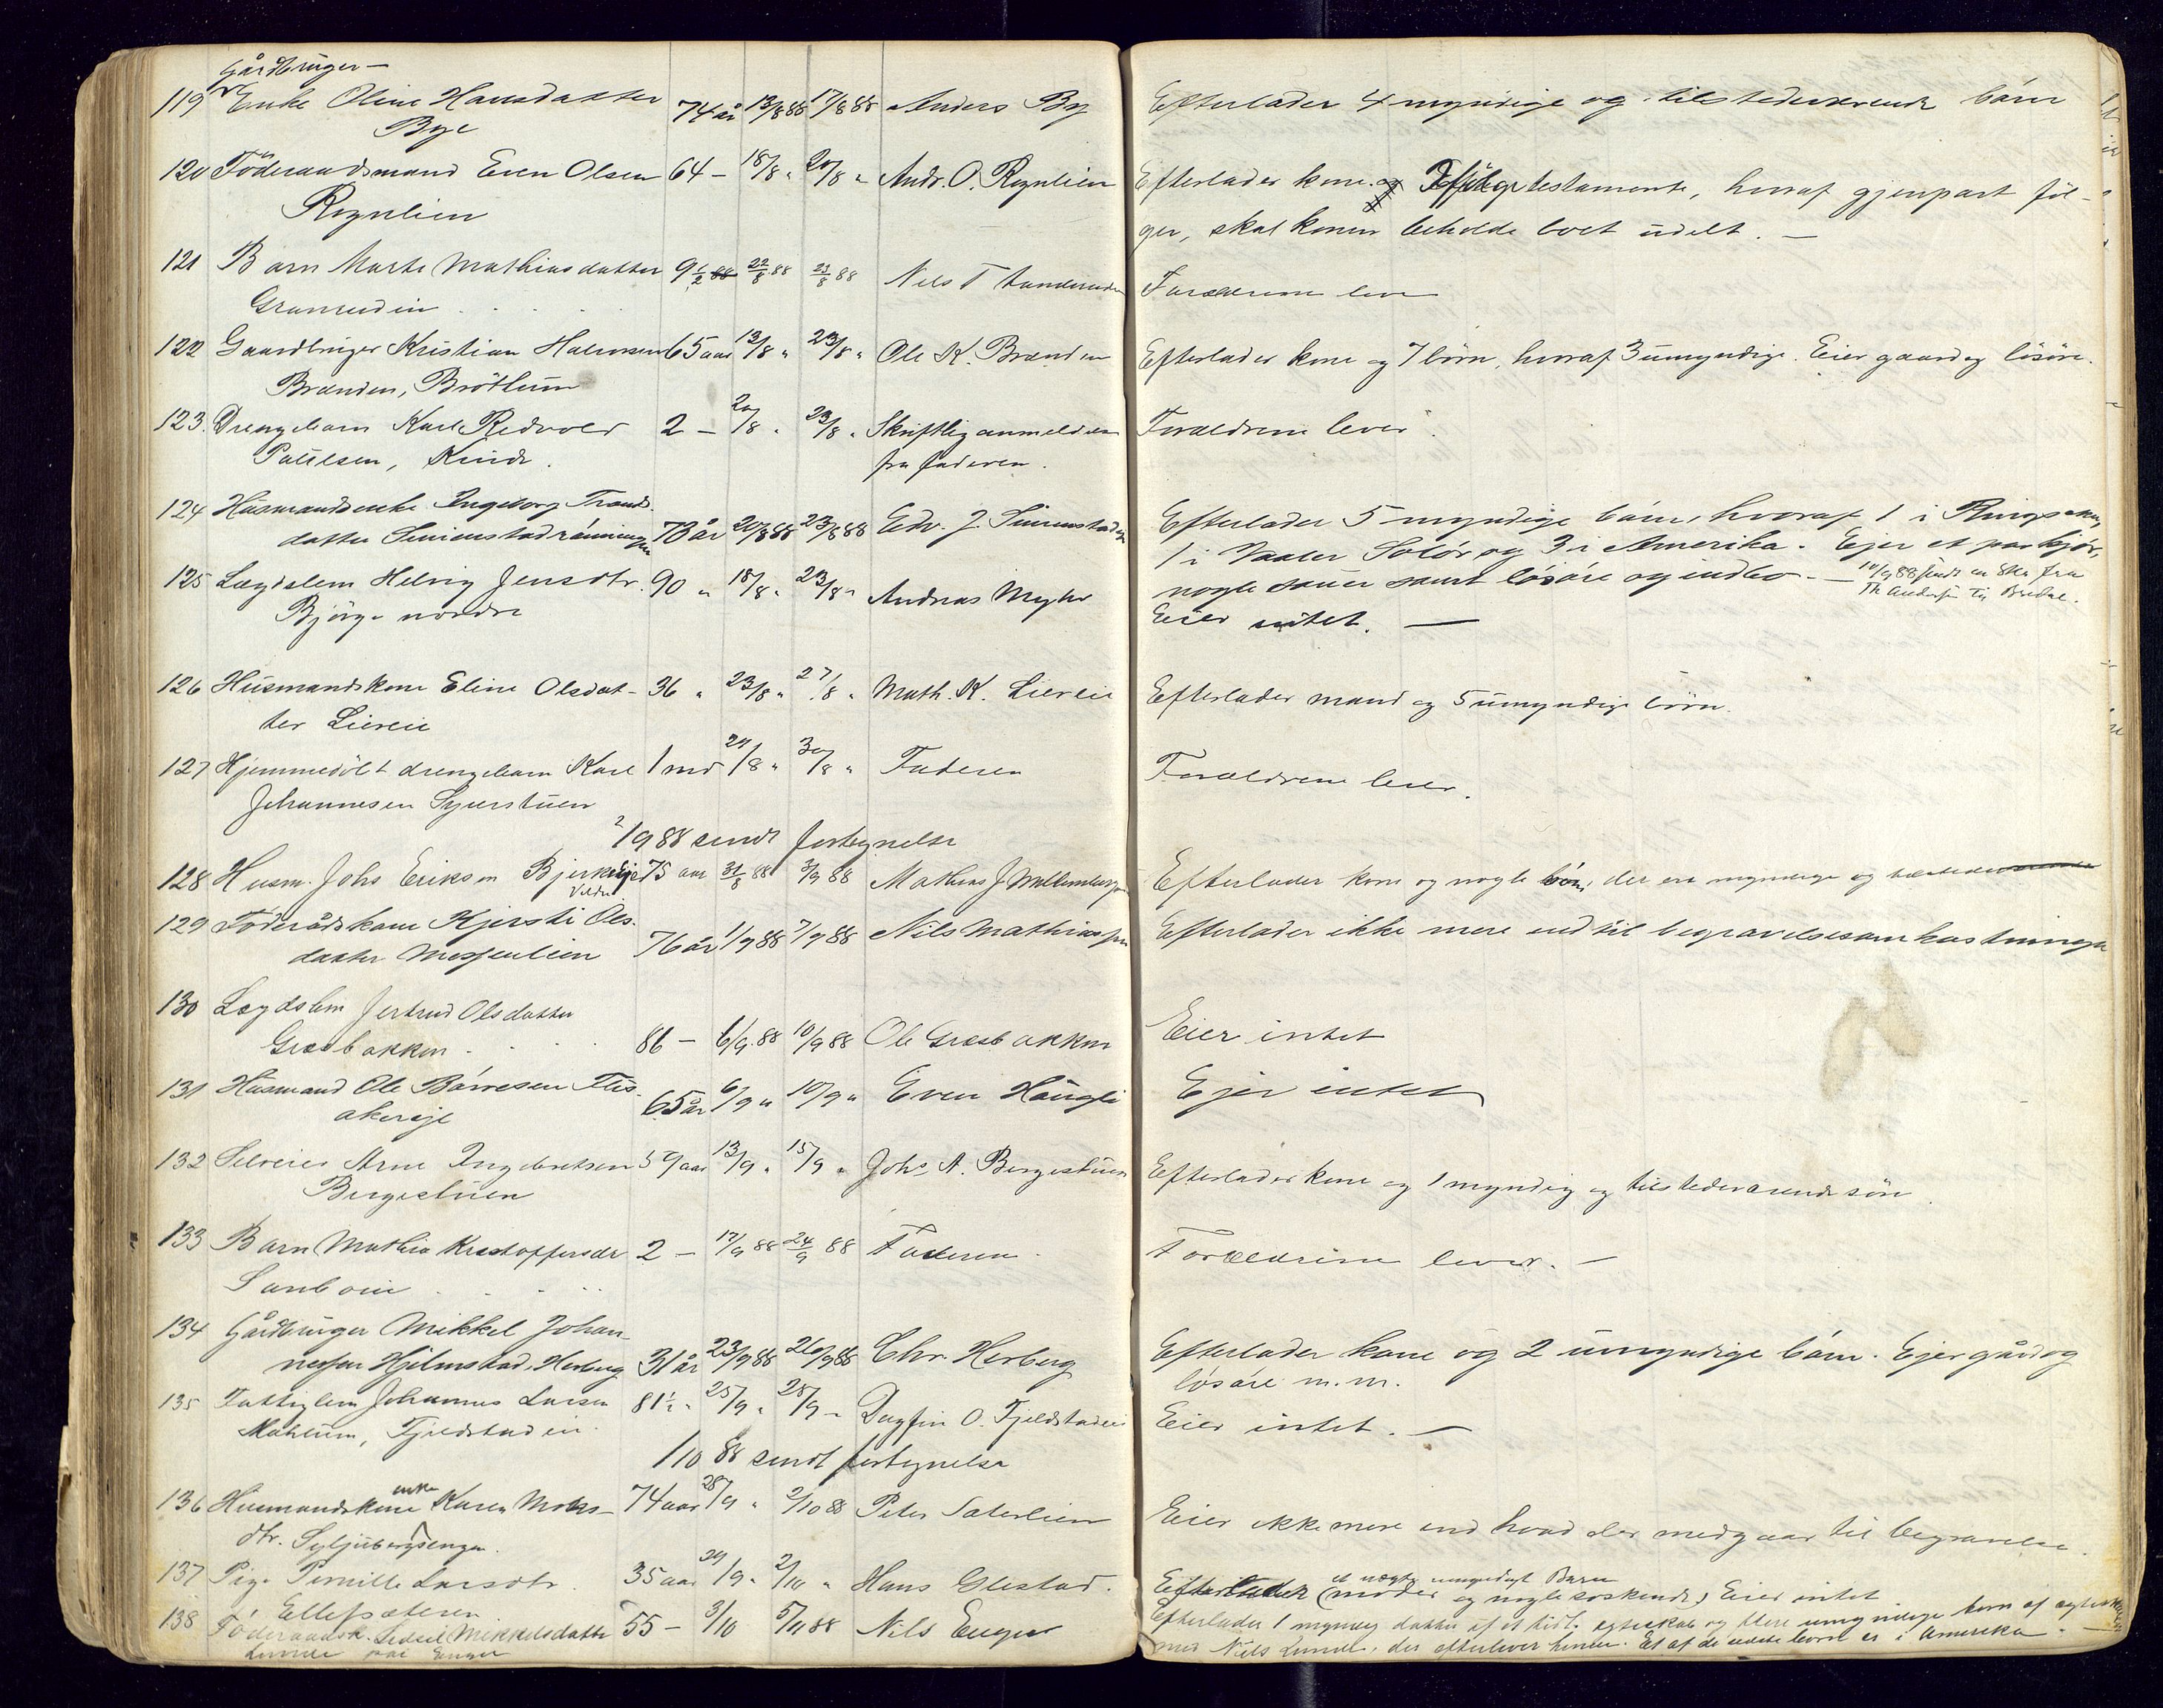 Gårdbruger-
119 Enke Oline Hansdatter 74 år 13/8 88 17/8 88 Anders By Efterlader 4 myndige og tilstedeværende børn
Bye
120 Föderaadsmand Even Olsen 64 - 18/8 " 20/8 " Andr. O. Røgnlien Efterlader kone. Ifølge testamente, hvoraf gjenpart føl-
Røgnlien ger, skal konen beholde boet udelt. -
121 Barn Marte Mathiasdatter 9 1/2 22/8 88 23/8 88 Nels T Forældrene lever
122 Gaardbruger Kristian Halvorsen 65 aar 12/8 " 23/8 " Ole K. Brænden Efterlader kone og 7 børn, hvoraf 3 umyndige. Eier gaard og løsøre.
Brænden, Brøttum
123. Drengebarn Karl Redvold 2 - 20/8 " 23/8 " Skriftlig anmeldelse Forældrene lever.
Paulsen, Kinde. fra faderen.
124 Husmandsenke Ingeborg Tronds- Efterlader 5 myndige børn, hvoraf 1 i Ringsaker,
datter 73 år 20/8 88 23/8 88 Edv. J. 1 i Vaaler Solør og 3 i Amerika. Ejer et par kjør,
nogle sauer samt løsøre og indbo. - 10/9 88 sendt en skr fra
Th Andersen til Bredal.
125 Lægdslem Helvig Jensdtr. 90 " 18/8 " 23/8 " Andreas Myhr Eier intet. -
Bjørge nordre
126 Husmandskone Eline Olsdat- 36 " 23/8 " 27/8 " Math. K. Liereie Efterlader mand og 5 umyndige børn.
ter Liereie
127 Hjemmedøbt drengebarn Karl 1 md 24/8 " 30/8 " Faderen Forældrene lever.
Johannesen
2/9 88 sendt fortegnelse
128 Husm. Johs Eriksen Bjerkeeje 75 aar 31/8 88 3/9 88 Mathias J Efterlader kone og nogle børn, der ere myndige og
129 Föderådskone Kjersti Ols- 76 år 1/9 88 7/9 88 Nils Mathiassen Efterlader ikke mere end til begravelsesomkostninger
datter Messenlien
130 Lægdslem Jertrud Olsdatter
Græsbakken 86 - 6/9 88 10/9 88 Ole Græsbakken Eier intet
131 Husmand Ole Børresen Flis- 65 år 6/9 " 10/9 " Even Haugli Ejer intet
akereje
132 Selveier Arne Ingebretsen 59 aar 13/9 " 15/9 " Johs A. Bergestuen Efterlader kone og 1 myndig og tilstedeværende søn.
Bergestuen
133 Barn Mathia Kristoffersdr 2 - 17/9 88 24/9 88 Faderen. Forældrene lever. -
134 Gårdbruger Mikkel Johan-
nessen Hjelmstad, Herberg 31 år 23/9 88 26/9 88 Chr. Herberg Efterlader kone og 2 umyndige børn. Ejer gård og
løsøre m.m.
135 Fattiglem Johannes Larsen 81 1/2 " 25/9 " 28/9 " Dagfin O. Fjeldstadeie Eier intet. -
Mæhlum, Fjeldstadeie.
1/10 88 sendt fortegnelse
136 Husmandskone enke Karen 74 aar 28/9 " 2/10 88 Peter Sæterlien Eier ikke mere end hvad der medgaar til begravelse.
dtr.
137 Pige Pernille Larsdtr. 35 aar 29/9 " 2/10 " Hans Glestad. Efterlader (moder og nogle søskende) et uægte umyndigt Barn Eier intet
Ellefsæteren
138 Föderaadsk. Mikkelsdatter 55 - 3/10 5/11 88 Nils Enger Efterlader 1 myndig datter af et tidl. egteskab og flere umyndige børn af egteskab
Lunde paa Enger med Nils Lunde, der efterlever hende. Et af de ældste børn er i Amerika. -